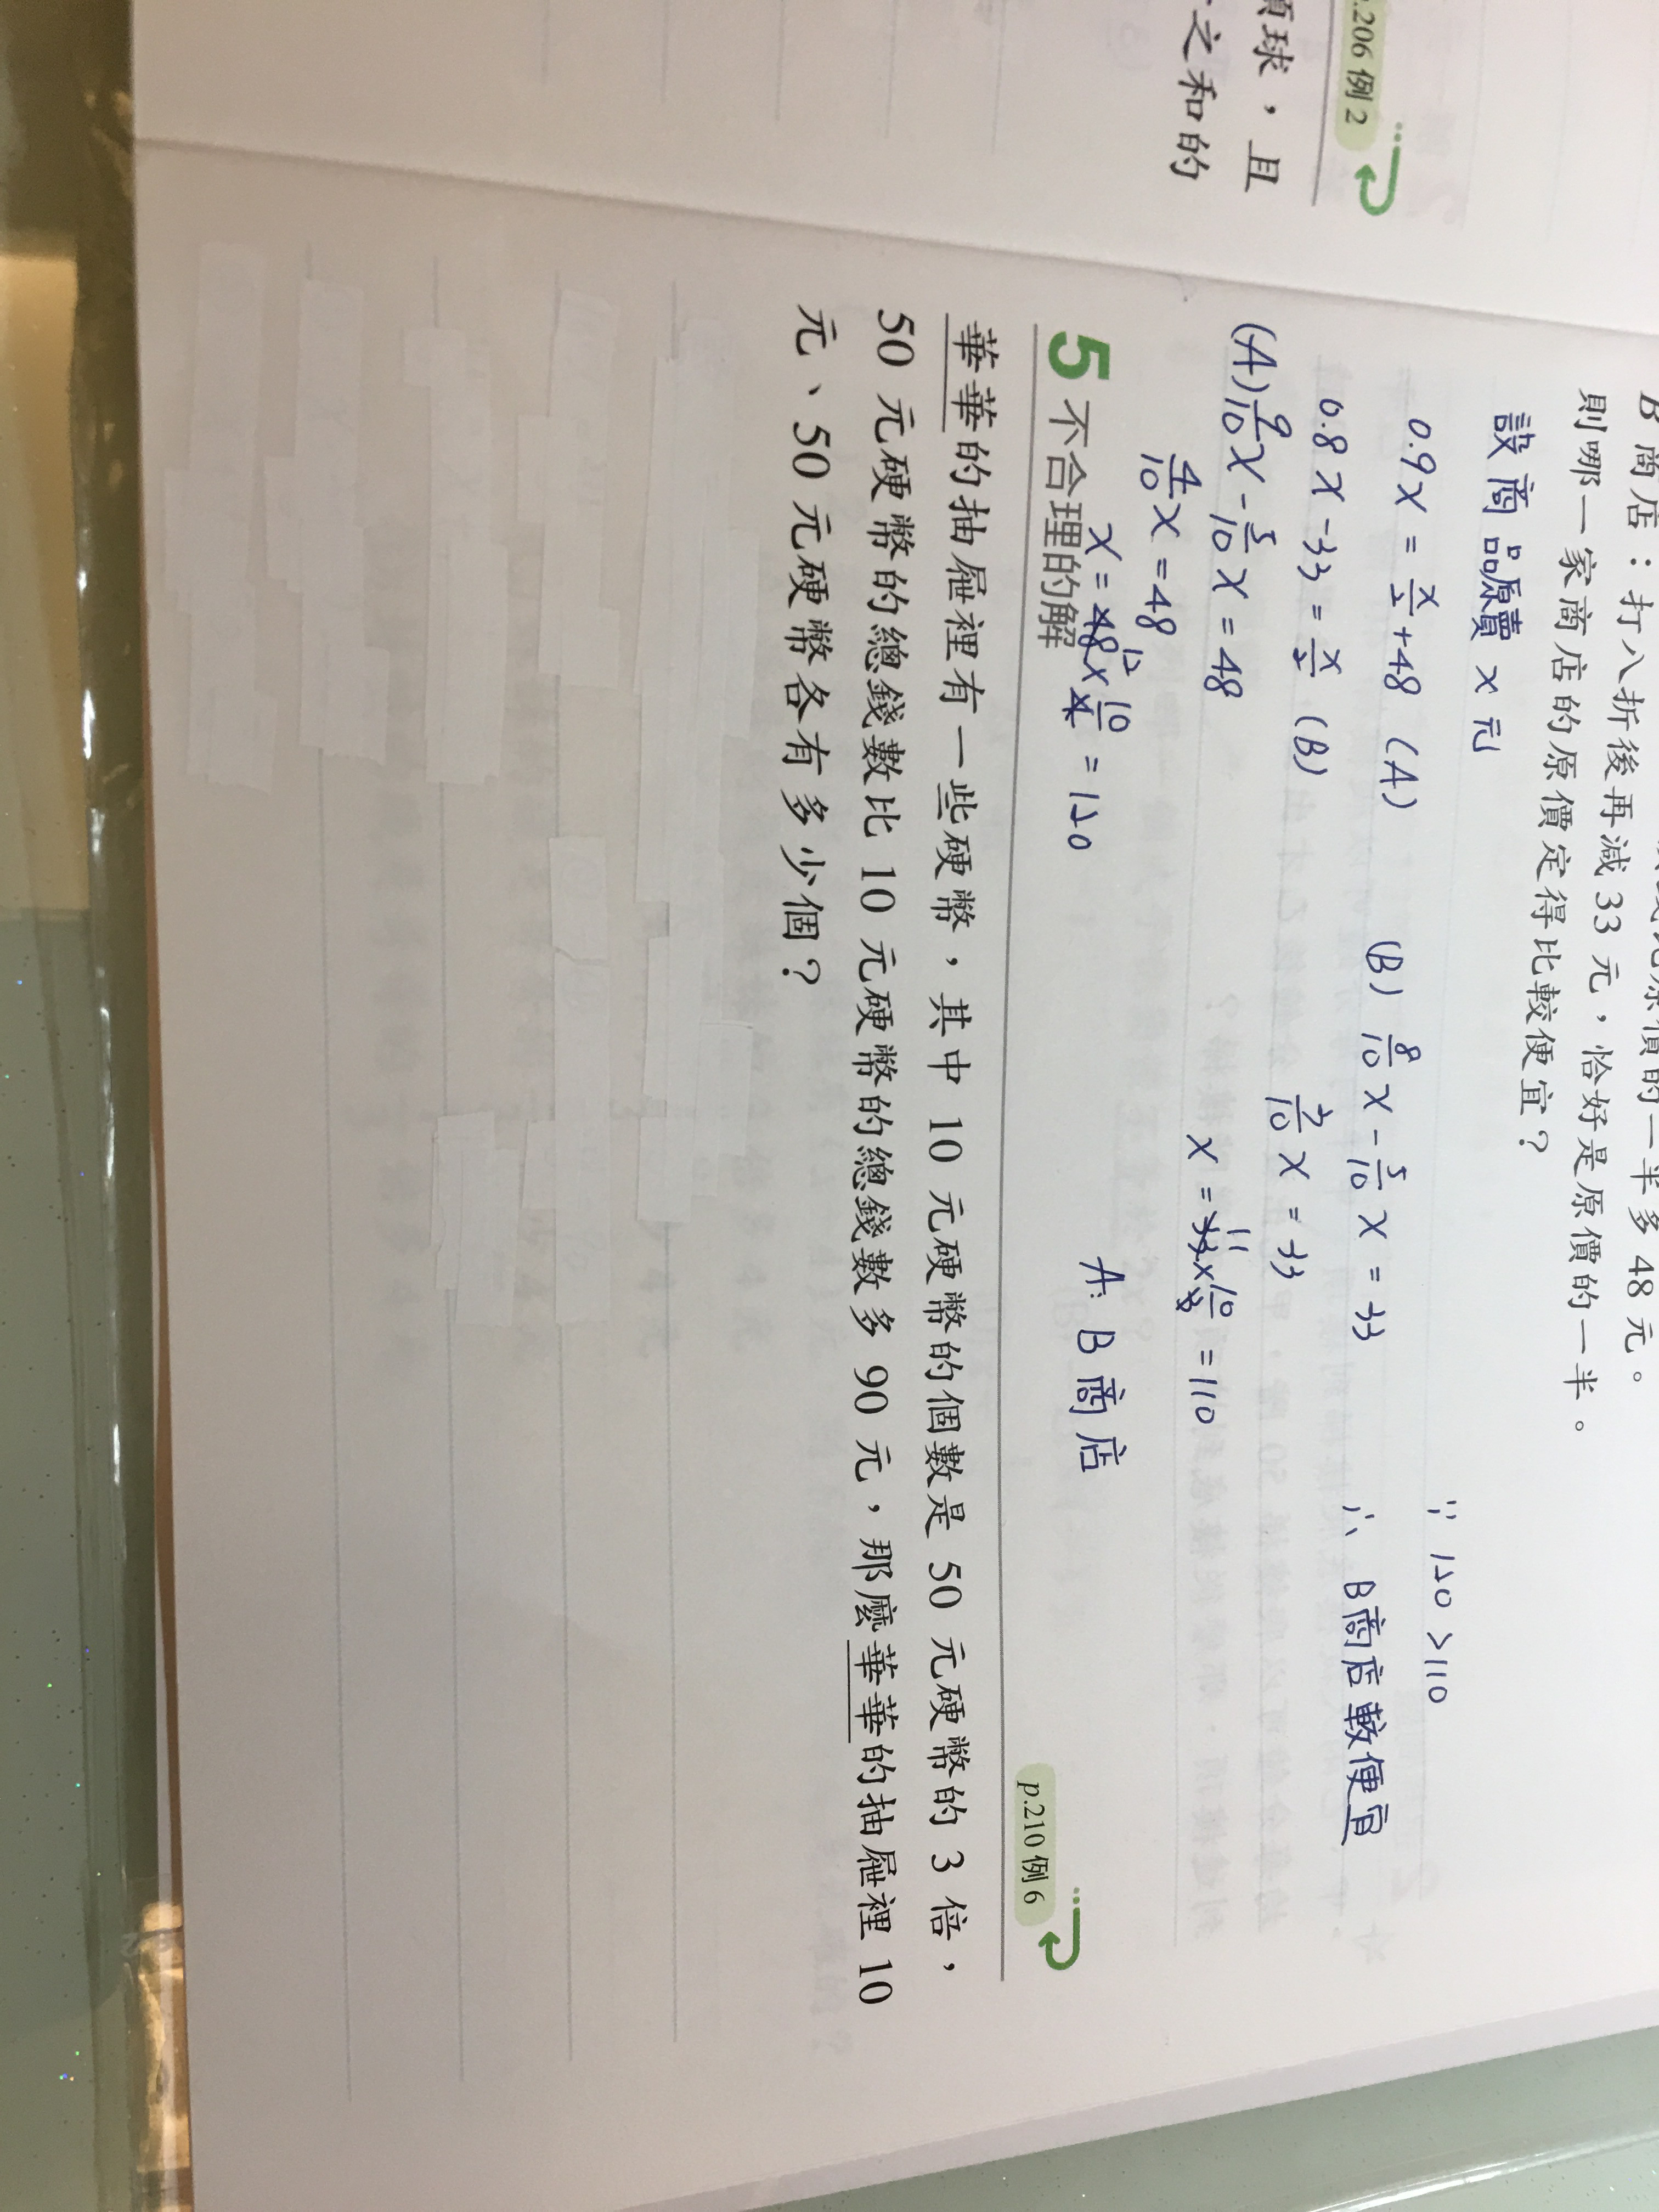 .206 例 2
顆球，且
之和的
B 商店：打八折後再減 33 元，恰好是原價的一半。
則哪一家商店的原價定得比較便宜？
設商品原賣 x 元
0.9x = x/2 + 48 (A)
0.8x - 33 = x/2 (B)
(A) 9/10 x - 5/10 x = 48
4/10 x = 48
x = 48 x 10/4 = 120
12
(B) 8/10 x - 5/10 x = 33
3/10 x = 33
x = 33 x 10/3 = 110
11
∵ 120 > 110
∴ B商店較便宜
A: B 商店
5 不合理的解
p.210 例 6
華華的抽屜裡有一些硬幣，其中 10 元硬幣的個數是 50 元硬幣的 3 倍，
50 元硬幣的總錢數比 10 元硬幣的總錢數多 90 元，那麼華華的抽屜裡 10
元、50 元硬幣各有多少個？